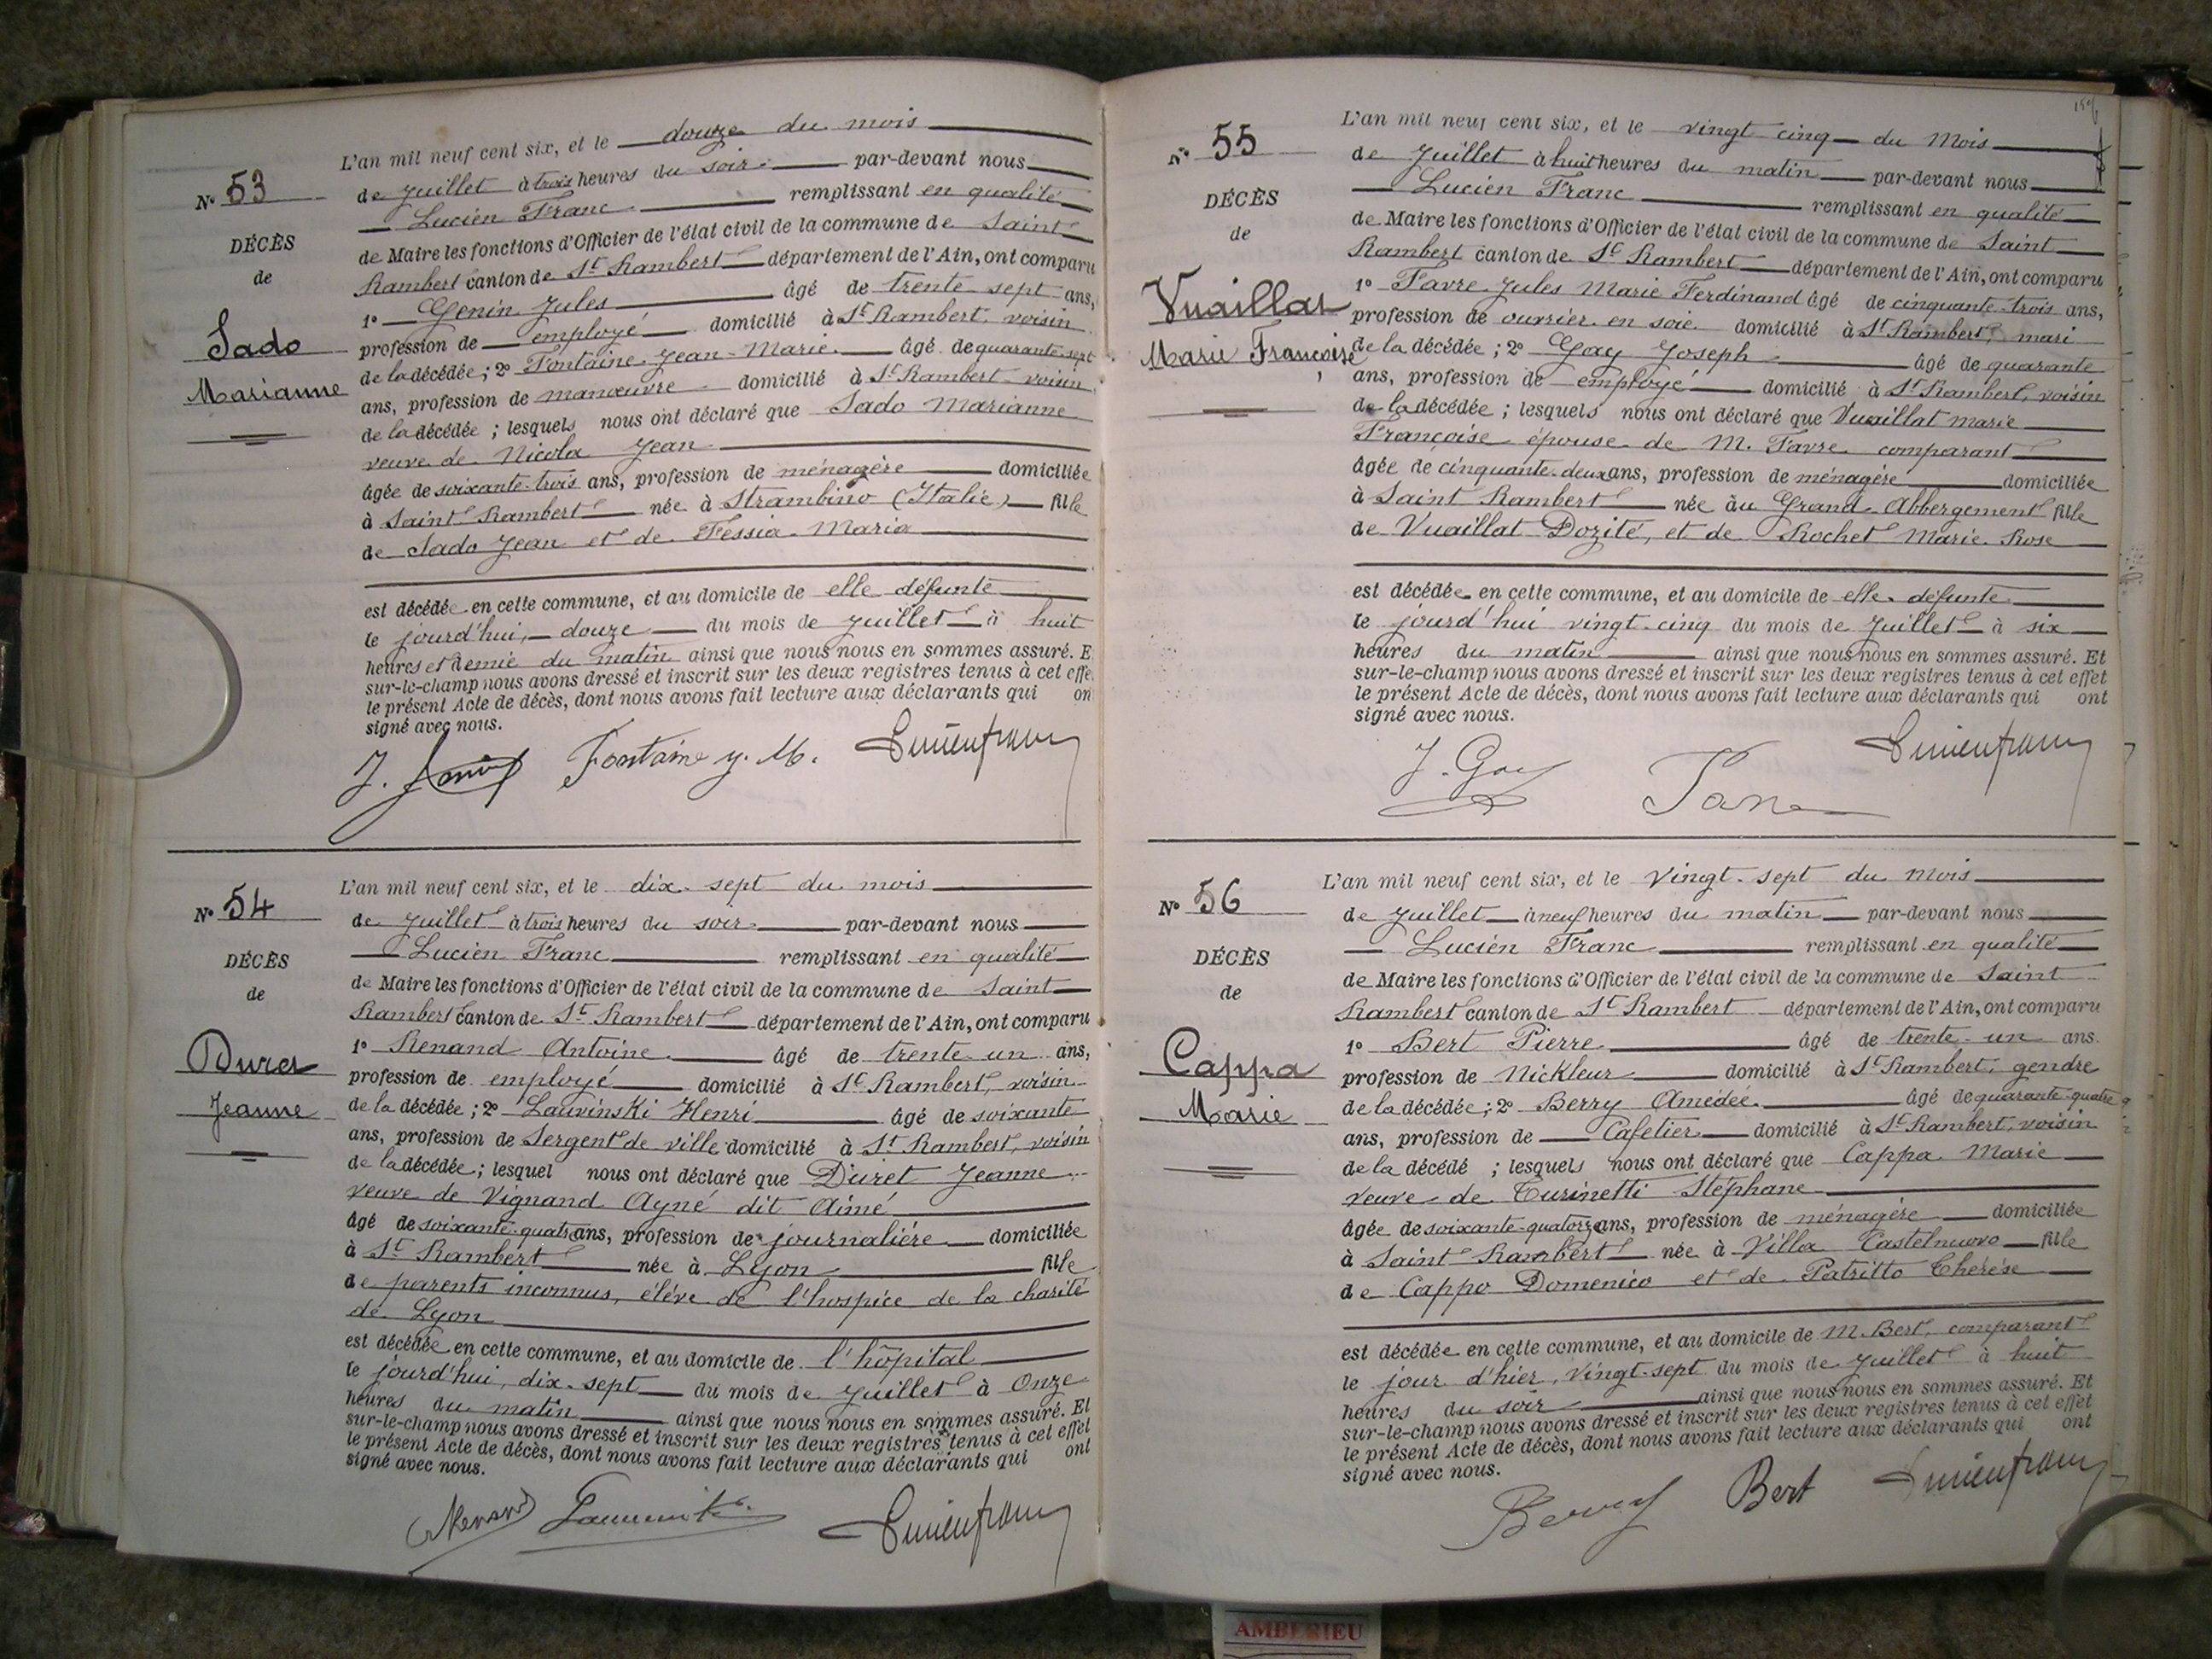 N° 53
DÉCÈS
de
Sado
Marianne
L'an mil neuf cent six, et le douze du mois
de Juillet à trois heures du soir par-devant nous
Lucien Franc remplissant en qualité
de Maire les fonctions d'Officier de l'état civil de la commune de Saint
Rambert canton de St Rambert département de l'Ain, ont comparu
1° Genin Jules âgé de trente sept ans,
profession de employé domicilié à St Rambert, voisin
de la décédée; 2° Fontaine Jean-Marie âgé de quarante-sept
ans, profession de manœuvre domicilié à St Rambert voisin
de la décédée; lesquels nous ont déclaré que Sado Marianne
veuve de Nicola Jean
âgée de soixante-trois ans, profession de ménagère domiciliée
à Saint Rambert née à Strambino (Italie) fille
de Sado Jean et de Fessia Maria
est décédée en cette commune, et au domicile de elle défunte
le jourd'hui, douze du mois de juillet à huit
heures et demie du matin ainsi que nous nous en sommes assuré. E
sur-le-champ nous avons dressé et inscrit sur les deux registres tenus à cet effe
le présent Acte de décès, dont nous avons fait lecture aux déclarants qui on
signé avec nous.
Fontaine J. M. Lucien franc
N° 54
DÉCÈS
de
Duret
Jeanne
L'an mil neuf cent six, et le dix-sept du mois
de Juillet à trois heures du soir par-devant nous
Lucien Franc remplissant en qualité
de Maire les fonctions d'Officier de l'état civil de la commune de Saint
Rambert canton de St Rambert département de l'Ain, ont comparu
1° Renand Antoine âgé de trente un ans,
profession de employé domicilié à St Rambert, voisin
de la décédée; 2° Lauvinski Henri âgé de soixante
ans, profession de Sergent de ville domicilié à St Rambert, voisin
de la décédée; lesquel nous ont déclaré que Duret Jeanne
veuve de Vignand Ayné dit Aimé
âgé de soixante-quatre ans, profession de journalière domiciliée
à St Rambert née à Lyon fille
de parents inconnus, élève de l'hospice de la charité
de Lyon
est décédée en cette commune, et au domicile de l'hôpital
le jourd'hui, dix-sept du mois de juillet à Onze
heures du matin ainsi que nous nous en sommes assuré. Et
sur-le-champ nous avons dressé et inscrit sur les deux registres tenus à cet effet
le présent Acte de décès, dont nous avons fait lecture aux déclarants qui ont
signé avec nous.
Renand Lucien franc
N° 55
DÉCÈS
de
Vuaillat
Marie Françoise
L'an mil neuf cent six, et le vingt cinq du Mois
de Juillet à huit heures du matin par-devant nous
Lucien Franc remplissant en qualité
de Maire les fonctions d'Officier de l'état civil de la commune de Saint
Rambert canton de St Rambert département de l'Ain, ont comparu
1° Favre Jules Marie Ferdinand âgé de cinquante-trois ans,
profession de ouvrier en soie domicilié à St Rambert, mari
de la décédée; 2° Gay Joseph âgé de quarante
ans, profession de employé domicilié à St Rambert, voisin
de la décédée; lesquels nous ont déclaré que Vuaillat marie
Françoise épouse de M. Favre comparant
âgée de cinquante-deux ans, profession de ménagère domiciliée
à Saint Rambert née au Grand Abbergement fille
de Vuaillat Dozité, et de Rochet Marie Rose
est décédée en cette commune, et au domicile de elle défunte
le jourd'hui vingt-cinq du mois de Juillet à six
heures du matin ainsi que nous nous en sommes assuré. Et
sur-le-champ nous avons dressé et inscrit sur les deux registres tenus à cet effet
le présent Acte de décès, dont nous avons fait lecture aux déclarants qui ont
signé avec nous.
J. Gay Lucien franc
N° 56
DÉCÈS
de
Cappa
Marie
L'an mil neuf cent six, et le Vingt-sept du Mois
de Juillet à neuf heures du matin par-devant nous
Lucien Franc remplissant en qualité
de Maire les fonctions d'Officier de l'état civil de la commune de Saint
Rambert canton de St Rambert département de l'Ain, ont comparu
1° Bert Pierre âgé de trente-un ans
profession de Nickleur domicilié à St Rambert, gendre
de la décédée; 2° Berry Amédée âgé de quarante-quatre
ans, profession de Cafetier domicilié à St Rambert, voisin
de la décédé ; lesquels nous ont déclaré que Cappa Marie
veuve de Turinetti Stéphane
âgée de soixante-quatorze ans, profession de ménagère domiciliée
à Saint Rambert née à Villa Castelnuovo fille
de Cappo Domenico et de Patritto Thérèse
est décédée en cette commune, et au domicile de M. Bert, comparant
le jour d'hier, Vingt-sept du mois de Juillet à huit
heures du soir ainsi que nous nous en sommes assuré. Et
sur-le-champ nous avons dressé et inscrit sur les deux registres tenus à cet effet
le présent Acte de décès, dont nous avons fait lecture aux déclarants qui ont
signé avec nous.
Berry Bert Lucien franc
AMBERIEU